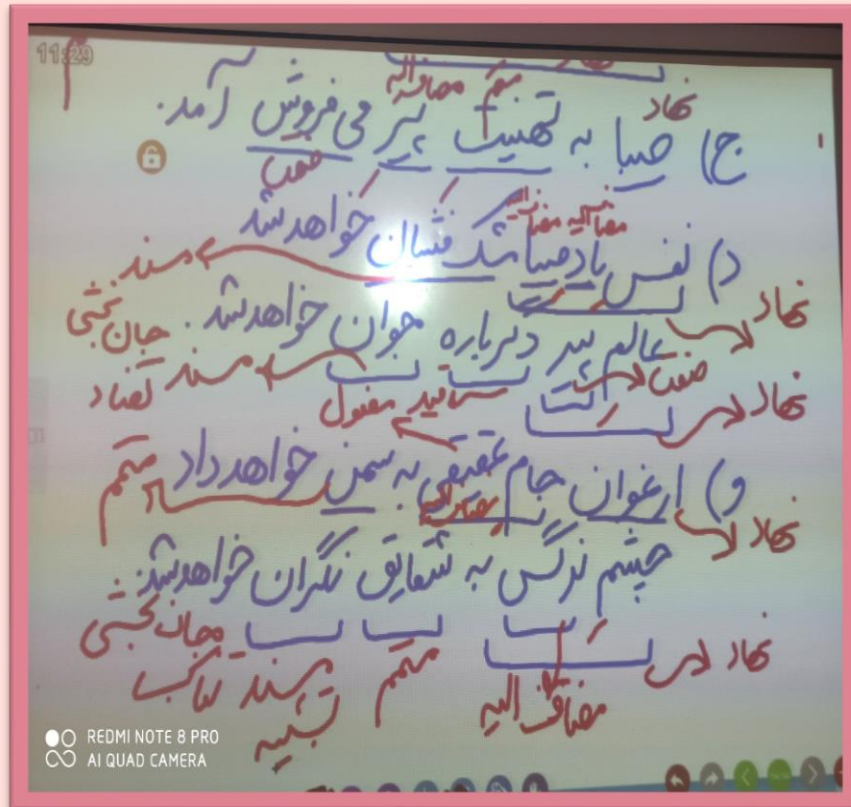 11:29
متمم مضاف الیه
نهاد
ج) صبا به تهنیت پیر می فروش آمد.
صفت
مضاف الیه مضاف الیه
د) نفس باد صبا مشک فشان خواهد شد
مسند
نهاد
عالم پیر دگرباره جوان خواهد شد.
جان بخشی
نهاد صفت قید مفعول مسند تضاد
و) ارغوان جام عقیقی به سمن خواهد داد
متمم
نهاد
چشم نرگس به شقایق نگران خواهد شد.
جان بخشی
نهاد مضاف الیه متمم مسند تناسب
تشبیه
REDMI NOTE 8 PRO
AI QUAD CAMERA